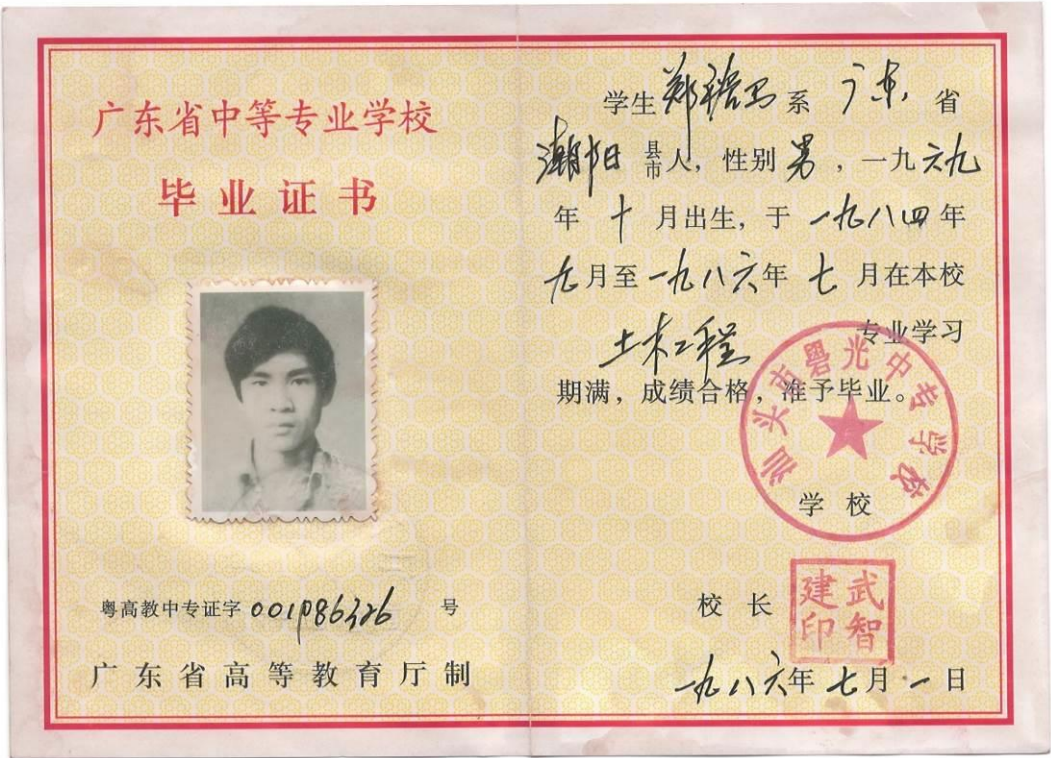 广东省中等专业学校
毕业证书
粤高教中专证字 001986326 号
广东省高等教育厅制
学生 郑 系 广东 省
潮阳 县市人，性别 男，一九六九
年 十 月出生，于 一九八四年
九月至一九八六年 七 月在本校
土木工程 专业学习
期满，成绩合格，准予毕业。
汕头市粤光中专学校
学校
校长 武智建印
一九八六年七月一日